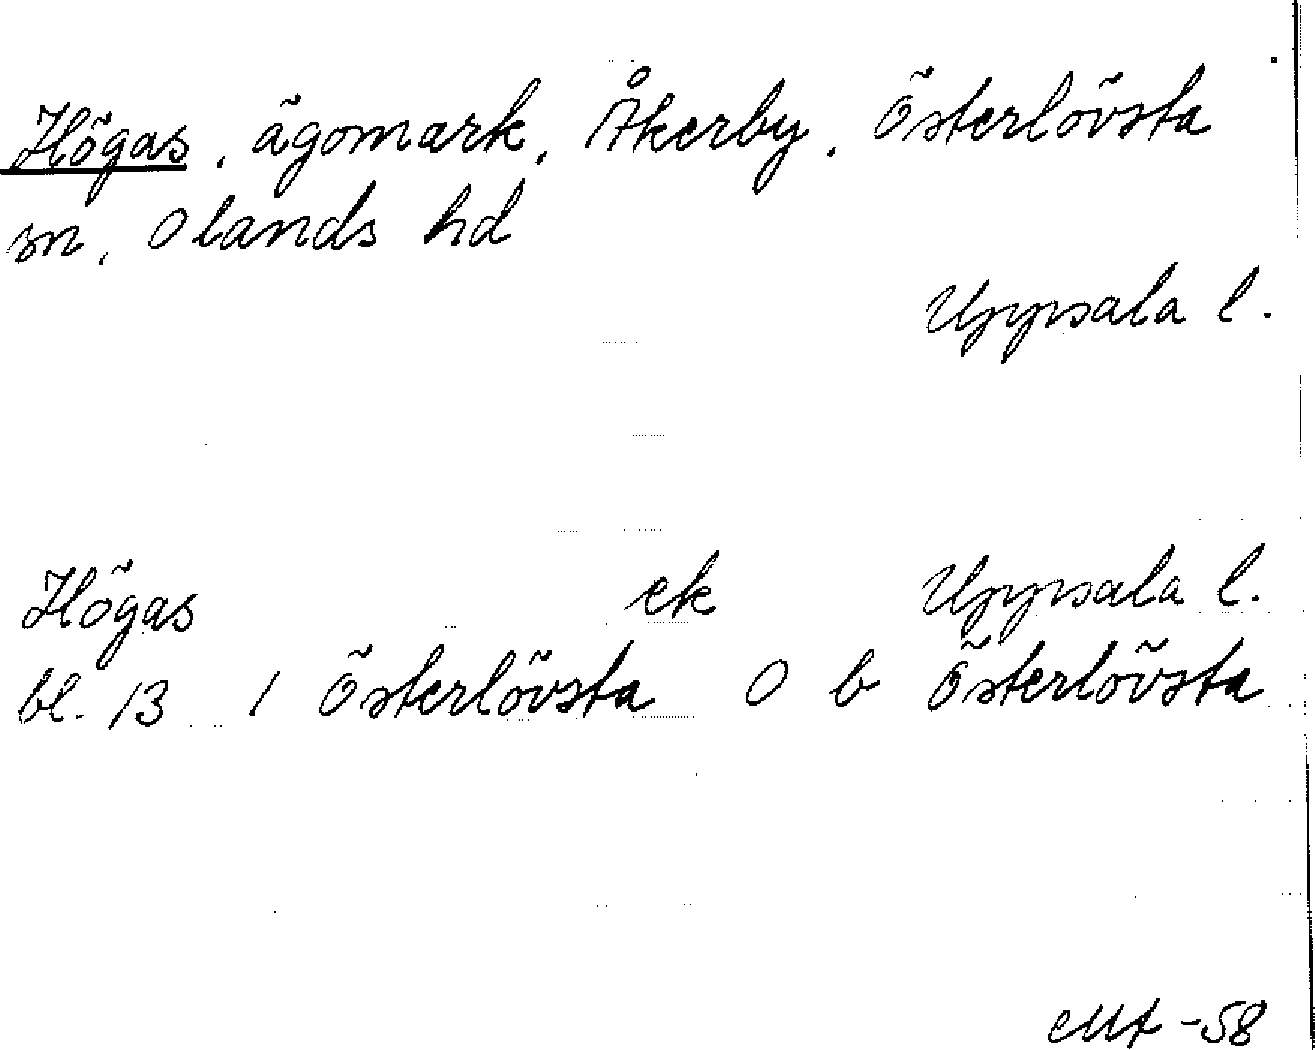 Högas, ägomark, Åkerby, Österlövsta
sn, Olands hd
Uppsala l.
Högas ek Uppsala l.
bl. 13 1 Österlövsta O b Österlövsta
-58